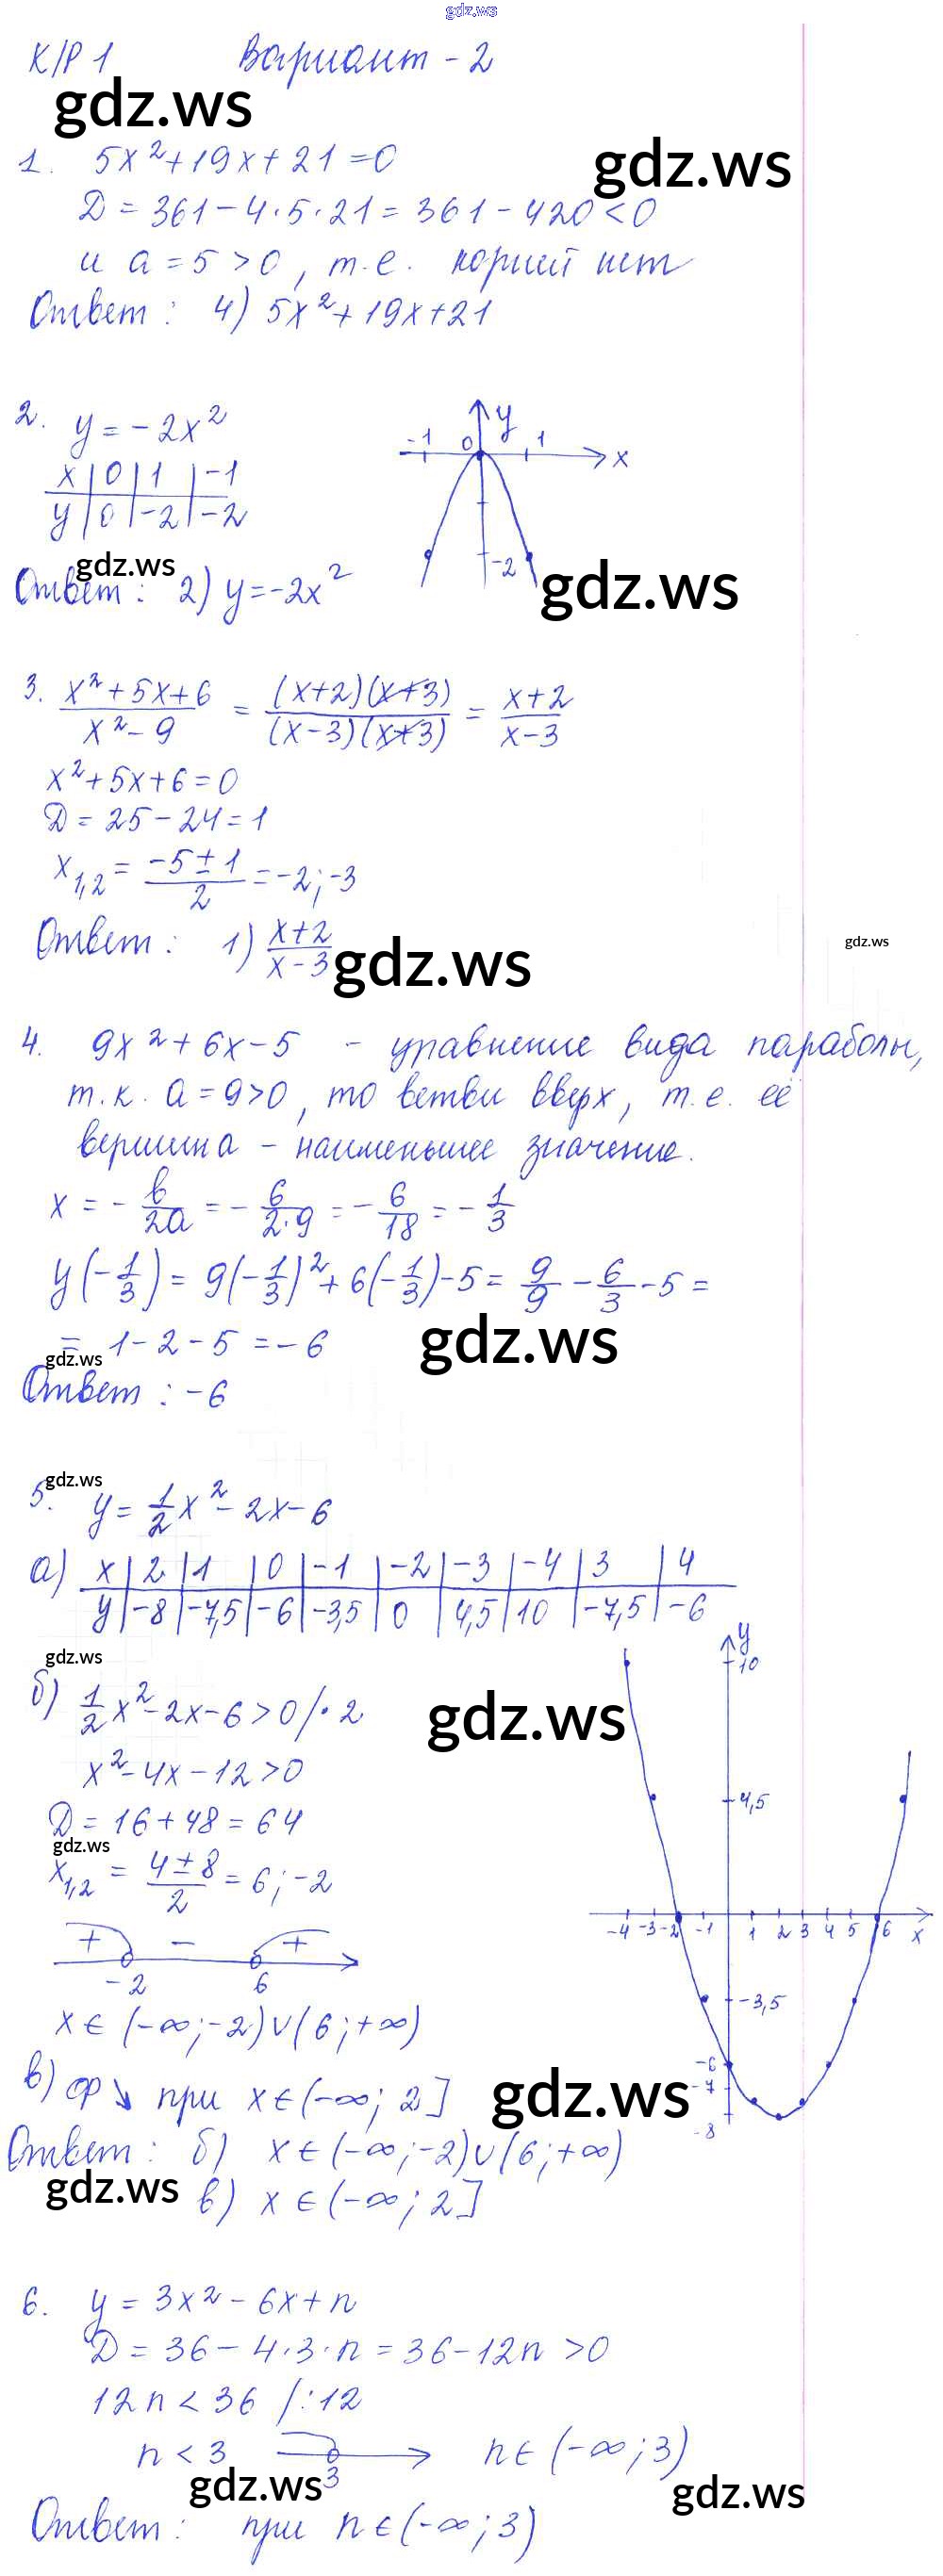 gdz.ws
К/Р 1 Вариант - 2
gdz.ws
gdz.ws
1. 5x²+19x+21=0
Д = 361-4·5·21 = 361-420<0
и a=5>0, т.е. корней нет
Ответ: 4) 5x²+19x+21
2. y=-2x²
x 0 1 -1
y 0 -2 -2
-1 0 y 1 x
-2
gdz.ws
gdz.ws
Ответ: 2) y=-2x²
3. (x²+5x+6)/(x²-9) = ((x+2)(x+3))/((x-3)(x+3)) = (x+2)/(x-3)
x²+5x+6=0
Д = 25-24=1
x₁,₂ = (-5±1)/2 = -2; -3
Ответ: 1) (x+2)/(x-3)
gdz.ws
gdz.ws
4. 9x²+6x-5 - уравнение вида параболы,
т.к. a=9>0, то ветви вверх, т.е. её
вершина - наименьшее значение.
x = -в/2a = -6/(2·9) = -6/18 = -1/3
y(-1/3) = 9(-1/3)²+6(-1/3)-5 = 9/9 - 6/3 - 5 =
= 1-2-5 = -6
gdz.ws
gdz.ws
Ответ: -6
gdz.ws
5. y = 1/2 x²-2x-6
а) x 2 1 0 -1 -2 -3 -4 3 4
y -8 -7,5 -6 -3,5 0 4,5 10 -7,5 -6
gdz.ws
б) 1/2 x²-2x-6>0 /·2
gdz.ws
x²-4x-12>0
Д = 16+48 = 64
gdz.ws
x₁,₂ = (4±8)/2 = 6; -2
+ - +
-2 6
x∈(-∞;-2)∪(6;+∞)
y
10
4,5
-4 -3 -2 -1 1 2 3 4 5 6 x
-3,5
-6
-7
-8
в) ф↘ при x∈(-∞; 2]
gdz.ws
Ответ: б) x∈(-∞;-2)∪(6;+∞)
gdz.ws
в) x∈(-∞; 2]
6. y = 3x²-6x+n
Д = 36-4·3·n = 36-12n>0
12n<36 /:12
n<3 3 n∈(-∞;3)
gdz.ws
gdz.ws
Ответ: при n∈(-∞;3)